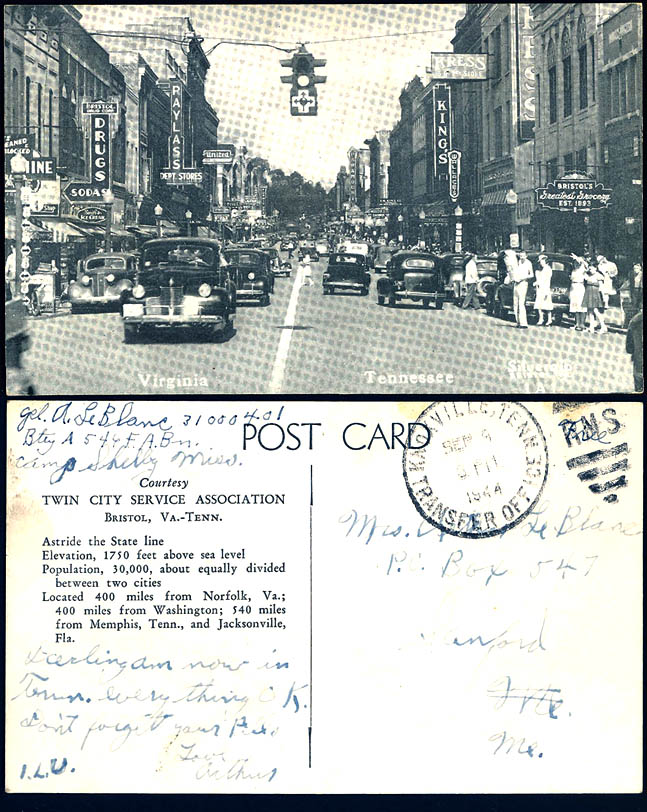 BRISTOL
DRUGS
SODAS
RAYLASS
DEPT STORES
United
KRESS
KING'S
WALLACE'S
BRISTOL'S
Greatest Grocery
EST. 1893
Virginia
Tennessee
A. LeBlanc 31000401
Btry A 546 F.A. Bn.
Camp Shelly Miss.
POST CARD
KNOXVILLE, TENN.
SEP
PM
1944
TRANSFER OFF.
R.M.S.
Free
Courtesy
TWIN CITY SERVICE ASSOCIATION
BRISTOL, VA.-TENN.
Astride the State line
Elevation, 1750 feet above sea level
Population, 30,000, about equally divided
between two cities
Located 400 miles from Norfolk, Va.;
400 miles from Washington; 540 miles
from Memphis, Tenn., and Jacksonville,
Fla.
Mrs. Le Blanc
P.O. Box 547
Sanford
Me.
Darling am now in
Tenn. everything O.K.
Don't forget your
Love
Arthur
I.L.U.